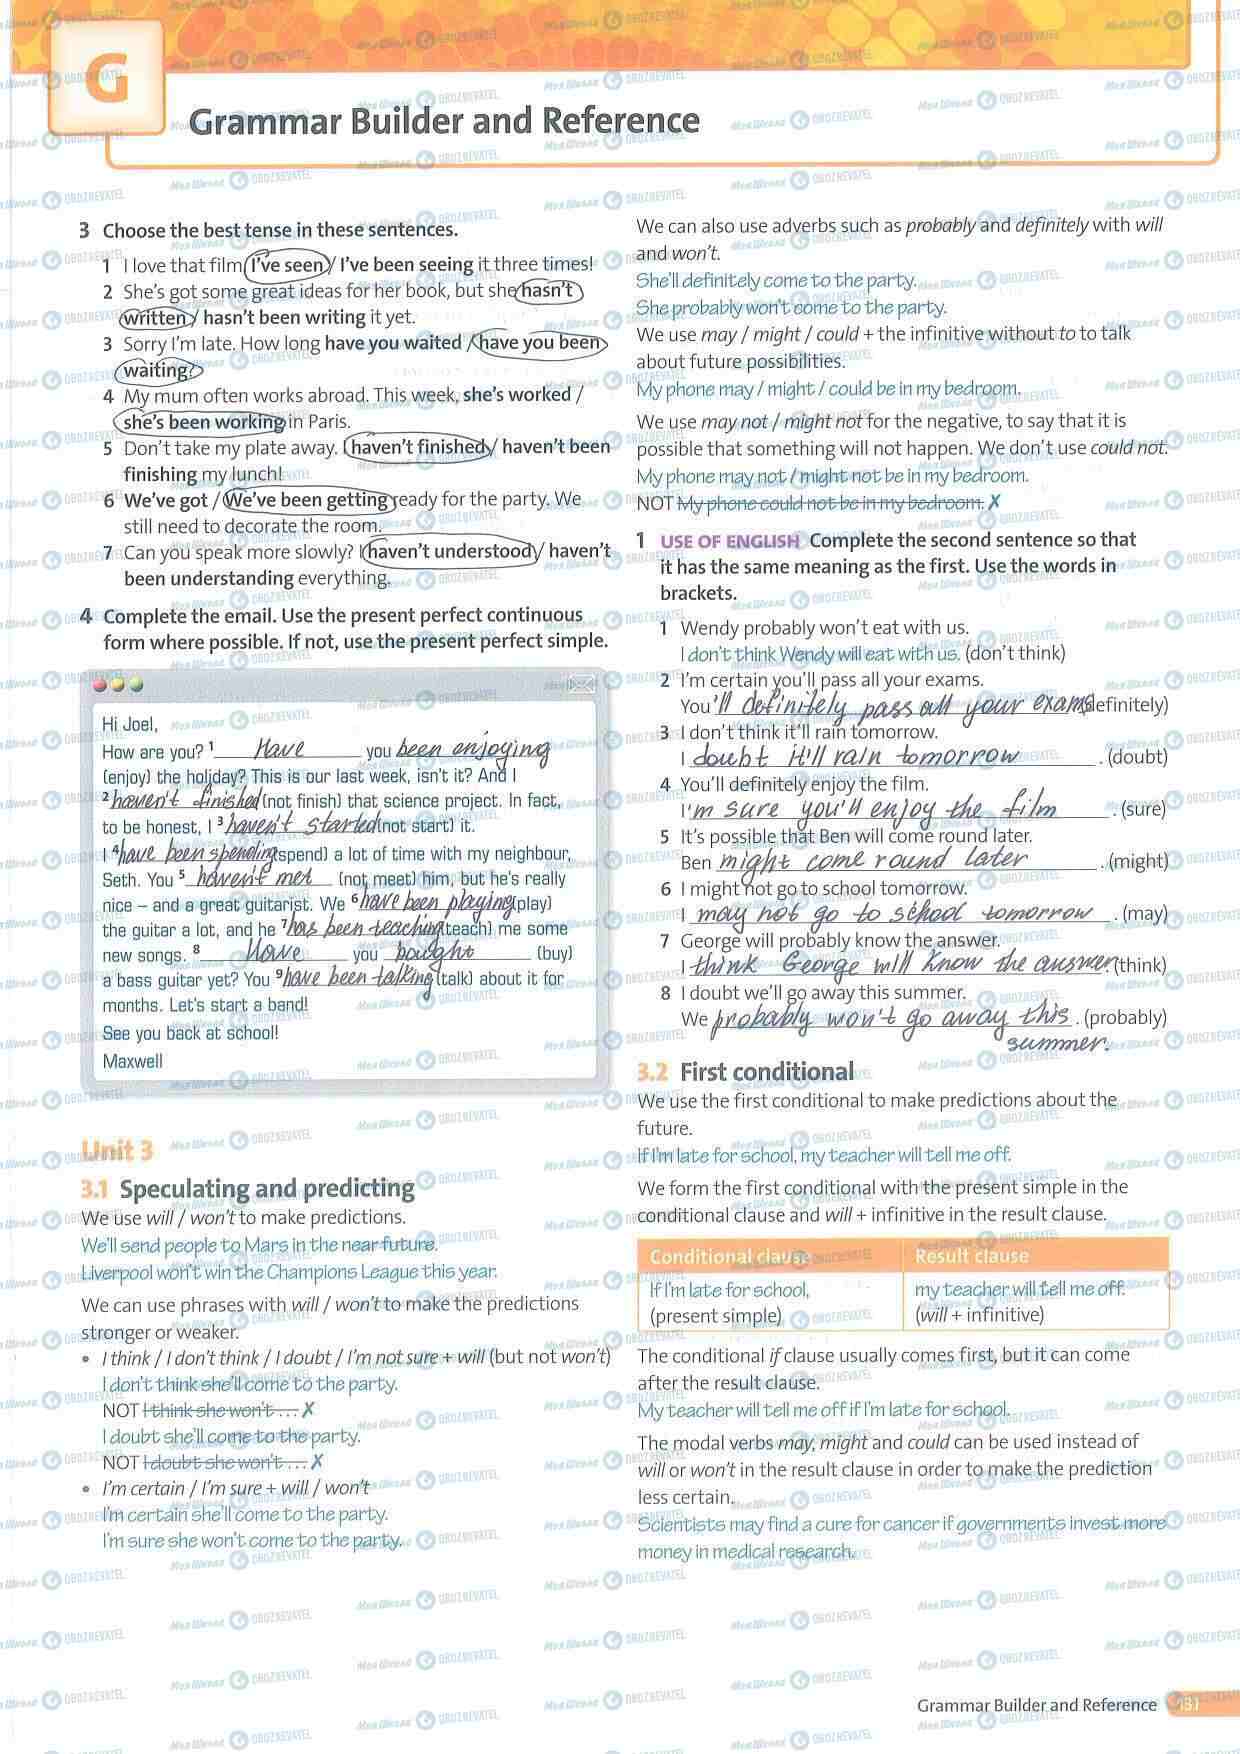 G
Grammar Builder and Reference
3 Choose the best tense in these sentences.
1 I love that film. I've seen / I've been seeing it three times!
2 She's got some great ideas for her book, but she hasn't
written / hasn't been writing it yet.
3 Sorry I'm late. How long have you waited / have you been
waiting?
4 My mum often works abroad. This week, she's worked /
she's been working in Paris.
5 Don't take my plate away. I haven't finished / haven't been
finishing my lunch!
6 We've got / We've been getting ready for the party. We
still need to decorate the room.
7 Can you speak more slowly? I haven't understood / haven't
been understanding everything.
4 Complete the email. Use the present perfect continuous
form where possible. If not, use the present perfect simple.
Hi Joel,
How are you? 1 Have you been enjoying
(enjoy) the holiday? This is our last week, isn't it? And I
2 haven't finished (not finish) that science project. In fact,
to be honest, I 3 haven't started (not start) it.
I 4 have been spending (spend) a lot of time with my neighbour,
Seth. You 5 haven't met (not meet) him, but he's really
nice – and a great guitarist. We 6 have been playing (play)
the guitar a lot, and he 7 has been teaching (teach) me some
new songs. 8 Have you bought (buy)
a bass guitar yet? You 9 have been talking (talk) about it for
months. Let's start a band!
See you back at school!
Maxwell
Unit 3
3.1 Speculating and predicting
We use will / won't to make predictions.
We'll send people to Mars in the near future.
Liverpool won't win the Champions League this year.
We can use phrases with will / won't to make the predictions
stronger or weaker.
• I think / I don't think / I doubt / I'm not sure + will (but not won't)
I don't think she'll come to the party.
NOT I think she won't … ✗
I doubt she'll come to the party.
NOT I doubt she won't … ✗
• I'm certain / I'm sure + will / won't
I'm certain she'll come to the party.
I'm sure she won't come to the party.
We can also use adverbs such as probably and definitely with will
and won't.
She'll definitely come to the party.
She probably won't come to the party.
We use may / might / could + the infinitive without to to talk
about future possibilities.
My phone may / might / could be in my bedroom.
We use may not / might not for the negative, to say that it is
possible that something will not happen. We don't use could not.
My phone may not / might not be in my bedroom.
NOT My phone could not be in my bedroom. ✗
1 USE OF ENGLISH Complete the second sentence so that
it has the same meaning as the first. Use the words in
brackets.
1 Wendy probably won't eat with us.
I don't think Wendy will eat with us. (don't think)
2 I'm certain you'll pass all your exams.
You'll definitely pass all your exams (definitely)
3 I don't think it'll rain tomorrow.
I doubt it'll rain tomorrow. (doubt)
4 You'll definitely enjoy the film.
I'm sure you'll enjoy the film. (sure)
5 It's possible that Ben will come round later.
Ben might come round later. (might)
6 I might not go to school tomorrow.
I may not go to school tomorrow. (may)
7 George will probably know the answer.
I think George will know the answer. (think)
8 I doubt we'll go away this summer.
We probably won't go away this . (probably)
summer.
3.2 First conditional
We use the first conditional to make predictions about the
future.
If I'm late for school, my teacher will tell me off.
We form the first conditional with the present simple in the
conditional clause and will + infinitive in the result clause.
Conditional clause Result clause
If I'm late for school, my teacher will tell me off.
(present simple) (will + infinitive)
The conditional if clause usually comes first, but it can come
after the result clause.
My teacher will tell me off if I'm late for school.
The modal verbs may, might and could can be used instead of
will or won't in the result clause in order to make the prediction
less certain.
Scientists may find a cure for cancer if governments invest more
money in medical research.
Grammar Builder and Reference 131
Моя Школа OBOZREVATEL